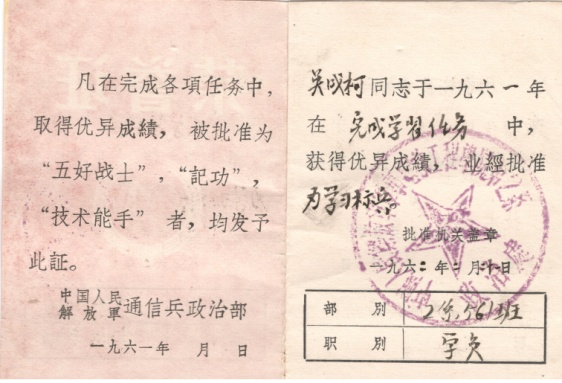 凡在完成各項任务中，
取得优异成績，被批准为
“五好战士”，“記功”，
“技术能手”者，均发予
此証。
中国人民
解放軍 通信兵政治部
一九六一年 月 日
吴成柯同志于一九六一年
在 完成学習任务 中，
获得优异成績，业經批准
为学习标兵。
批准机关盖章
一九六二年二月 日
部別 561班
职別 学员